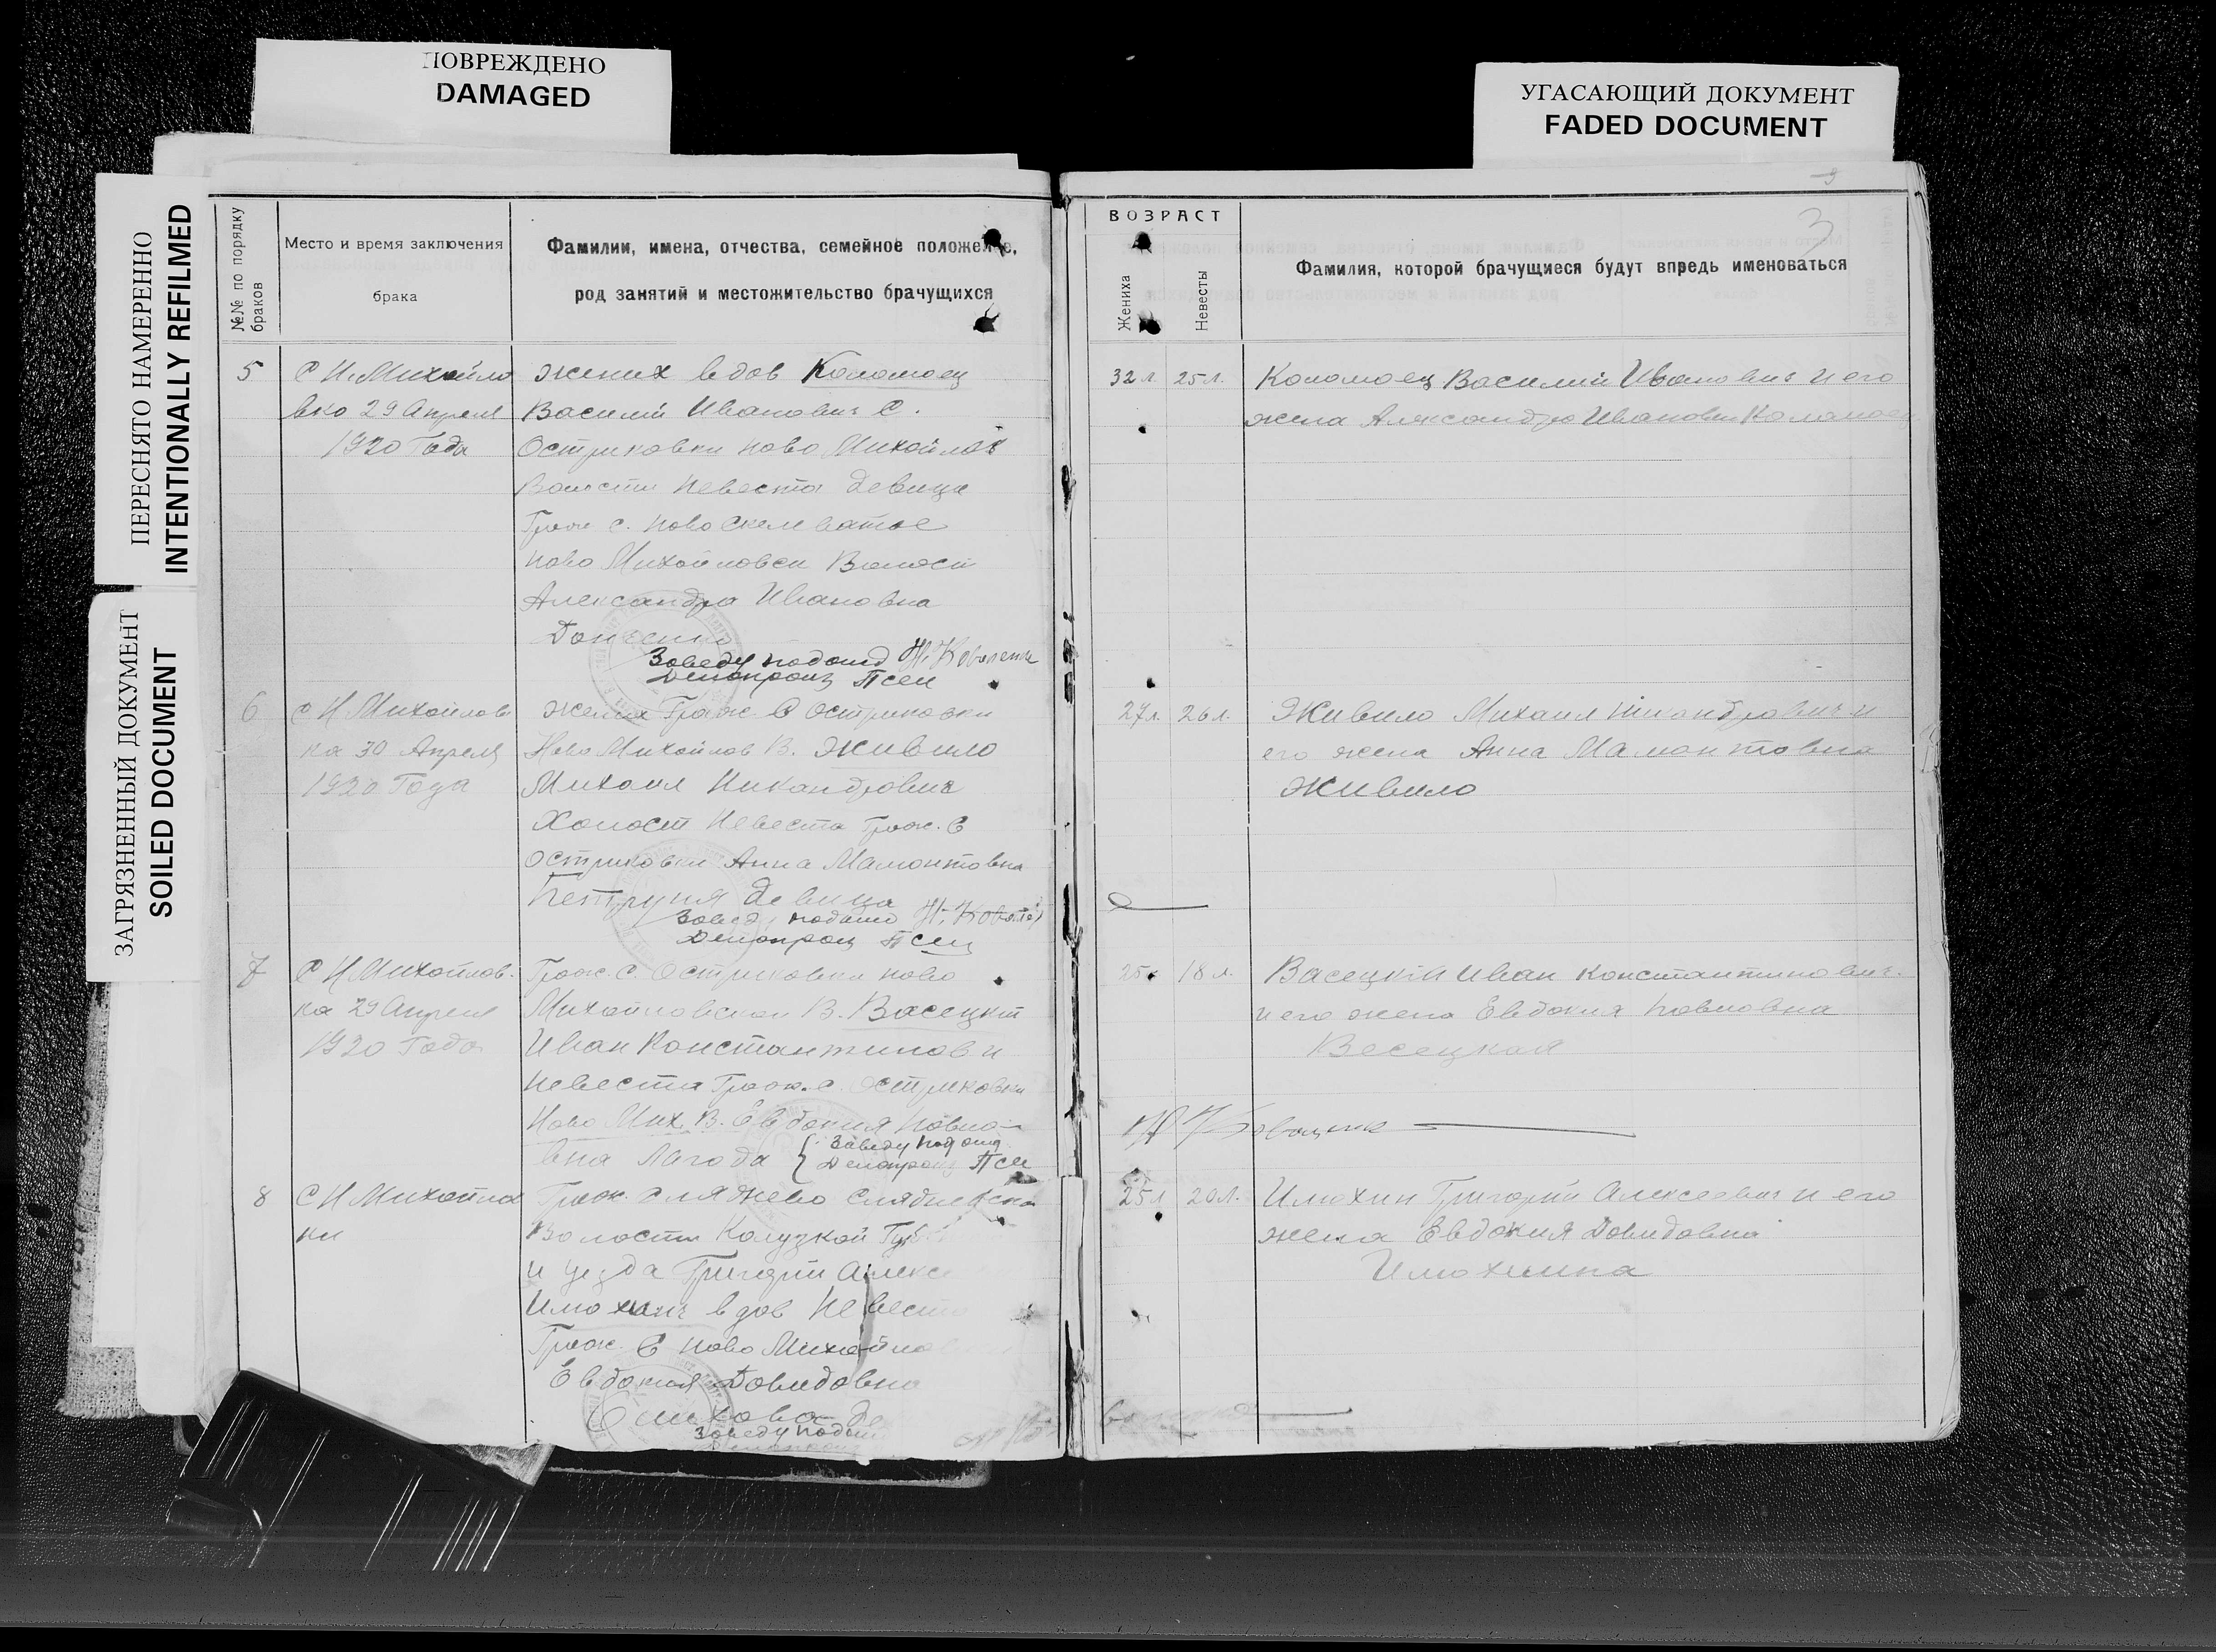 ПОВРЕЖДЕНО
DAMAGED
УГАСАЮЩИЙ ДОКУМЕНТ
FADED DOCUMENT
ПЕРЕСНЯТО НАМЕРЕННО
INTENTIONALLY REFILMED
ЗАГРЯЗНЕННЫЙ ДОКУМЕНТ
SOILED DOCUMENT
№№ по порядку
браков
Место и время заключения
брака
Фамилии, имена, отчества, семейное положение,
род занятий и местожительство брачущихся
5
С Н Михайло
вка 29 Апреля
1920 Года
жених вдов Коломоец
Василий Иванович С.
Остриковки Ново Михайлов
Волости Невеста девица
Граж с. Ново Скелеватое
Ново Михайловск Волости
Александра Ивановна
Заведу подотд Н. Коваленк
Делопроиз Псел
6
С Н Михайлов
ка 30 Апреля
1920 Года
жених Граж. С Остриковки
Ново Михайлов В. Живило
Михаил Никандрович
Холост Невеста Граж. С
Остриковки Анна Мамонтовна
девица
Завед подотд Н. Ковал
Делопроиз Псел
7
С Н Михайлов.
ка 29 Апреля
1920 Года
Граж. С. Остриковки Ново
Михайловской В. Васецкий
Иван Константинов и
Невеста Граж. с. Остриковки
Ново Мих. В. Евдокия Павло-
вна Лагода { Заведу подотд
Делопроиз Псел
8
С Н Михайлов
ки
Граж.
Волости Калузкой Губ
и уезда Григорий Алексе
Илюхин вдов Невеста
Граж. С Ново Михайло
Евдокия Давидовна
Заведу подотд
9
3
ВОЗРАСТ
Жениха
Невесты
Фамилия, которой брачущиеся будут впредь именоваться
32 л. 25 л. Коломоец Василий Иванович и его
жена Александра Ивановна Коломоец
27 л. 26 л. Живило Михаил Никандрович и
его жена Анна Мамонтовна
Живило
25 18 л. Васецкий Иван Константинович.
и его жена Евдокия Павловна
Весецкая
Н Коваленк
25 л 20 л. Илюхин Григорий Алексеевич и его
жена Евдокия Давидовна
Илюхина